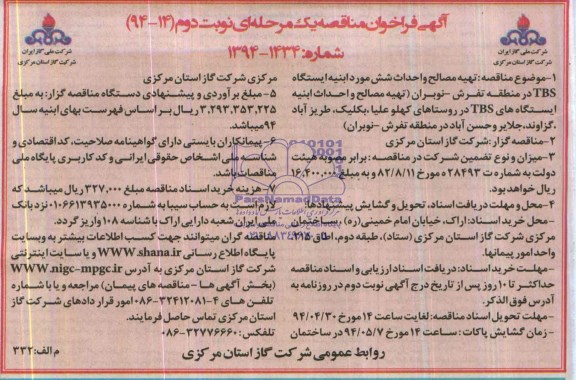 آگهی فراخوان مناقصه یک مرحله‌ای نوبت دوم (۱۴-۹۴)
شماره: ۱۴۳۴-۱۳۹۴
شرکت ملی گاز ایران
شرکت گاز استان مرکزی
شرکت ملی گاز ایران
شرکت گاز استان مرکزی
۱-موضوع مناقصه: تهیه مصالح و احداث شش مورد ابنیه ایستگاه
TBS در منطقه تفرش -نوبران (تهیه مصالح و احداث ابنیه
ایستگاه های TBS در روستاهای کهلو علیا ،بکلیک، طریز آباد
،گزاوند، جلایر و حسن آباد در منطقه تفرش -نوبران)
۲-مناقصه گزار: شرکت گاز استان مرکزی
۳-میزان و نوع تضمین شرکت در مناقصه: برابر مصوبه هیئت
دولت به شماره ت ۲۸۴۹۳ه مورخ ۸۲/۸/۱۱ و به مبلغ ۱۶,۴۰۰,۰۰۰
ریال خواهد بود.
۴-محل و مهلت دریافت اسناد، تحویل و گشایش پیشنهادها:
-محل خرید اسناد: اراک، خیابان امام خمینی(ره) ساختمان
مرکزی شرکت گاز استان مرکزی (ستاد)، طبقه دوم، اطاق ۲۱۵
واحد امور پیمانها.
-مهلت خرید اسناد: دریافت اسناد ارزیابی و اسناد مناقصه
حداکثر تا ۱۰ روز پس از تاریخ درج آگهی نوبت دوم در روزنامه به
آدرس فوق الذکر.
-مهلت تحویل اسناد مناقصه: لغایت ساعت ۱۴ مورخ ۹۴/۰۴/۳۰
-زمان گشایش پاکات : ساعت ۱۴ مورخ ۹۴/۰۵/۷ در ساختمان
مرکزی شرکت گاز استان مرکزی
۵-مبلغ برآوردی و پیشنهادی دستگاه مناقصه گزار: به مبلغ
۳,۲۹۳,۳۵۳,۲۲۵ ریال بر اساس فهرست بهای ابنیه سال
۹۴ میباشد.
۶-پیمانکاران بایستی دارای گواهینامه صلاحیت، کد اقتصادی و
شناسه ملی اشخاص حقوقی ایرانی و کد کاربری پایگاه ملی
مناقصات باشد.
۷-هزینه خرید اسناد مناقصه مبلغ ۳۲۷,۰۰۰ ریال میباشد که
لازم است به حساب سیبا به شماره ۰۱۰۶۶۱۳۹۳۵۰۰۰ نزد بانک
ملی ایران شعبه دارایی اراک با شناسه ۱۰۸ واریز گردد.
مناقصه گران میتوانند جهت کسب اطلاعات بیشتر به وبسایت
پایگاه اطلاع رسانی WWW.shana.ir و یا سایت اینترنتی
شرکت گاز استان مرکزی به آدرس WWW.nigc-mpgc.ir
(بخش آگهی ها - مناقصه های پیمان) مراجعه و یا با شماره
تلفن های ۴-۳۲۴۱۲۰۸۱-۰۸۶ امور قرار دادهای شرکت گاز
استان مرکزی تماس حاصل فرمایند.
تلفکس: ۳۲۷۷۶۶۶۰-۰۸۶
روابط عمومی شرکت گاز استان مرکزی
م الف: ۳۳۲
ParsNamadData